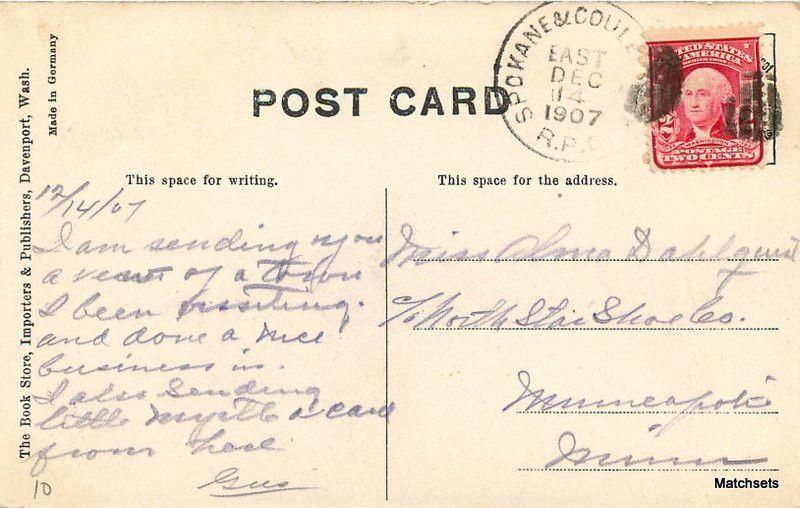 The Book Store, Importers & Publishers, Davenport, Wash.
Made in Germany
POST CARD
SPOKANE & COULE
EAST
DEC
14
1907
R.P.O
UNITED STATES
OF AMERICA
POSTAGE
TWO CENTS
This space for writing.
This space for the address.
12/14/07
I am sending you
a view of a town
I been visiting.
and done a nice
business in.
I also sending
little Myrtle a card
from here
Gus
10
Miss Alma Dahlquist
c/o North Star Shoe Co.
Minneapolis
Minn
Matchsets